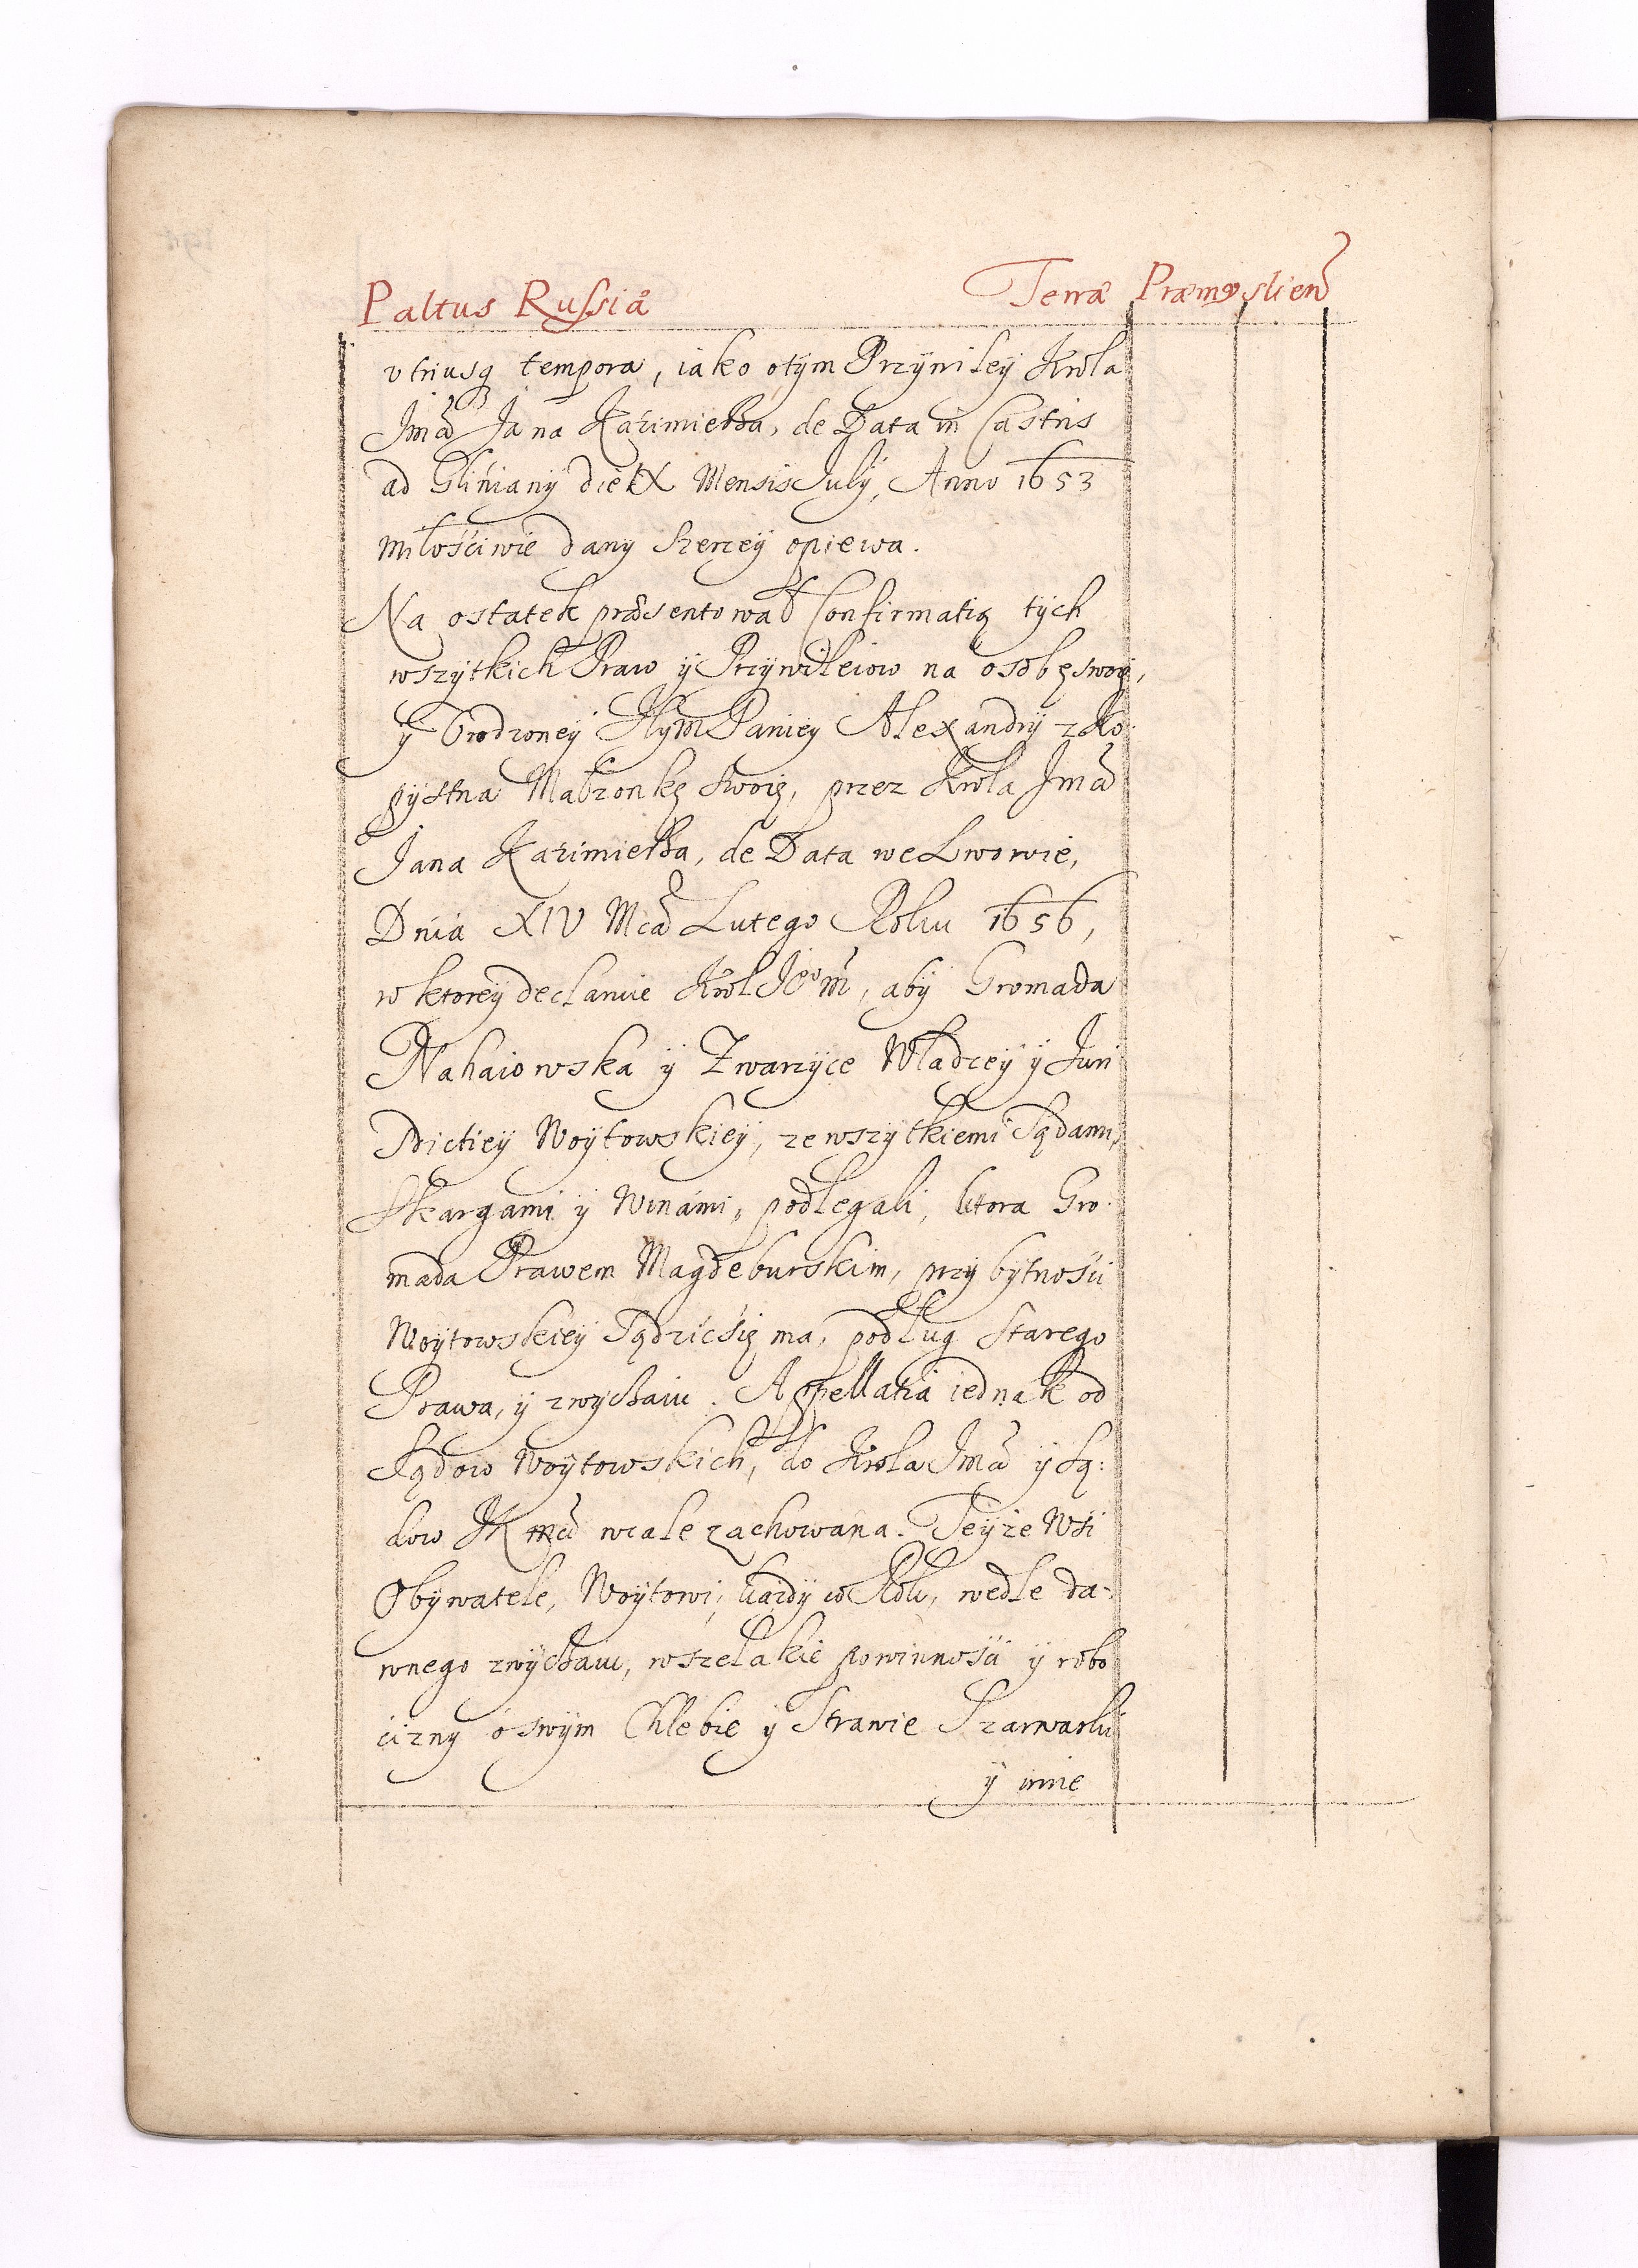 Paltus Russiæ Terræ Præmysliens
vtriusq tempora, iako otÿm Przÿwileÿ Krola
Jmci Jana Kazimierza, de Data in Castris
ad Gliniany die IX Mensis Julÿ, Anno 1653
miłościwie dany szerzeÿ opiewa.
Na ostatek præsentował Confirmatią tÿch
wszÿtkich Praw ÿ Przÿwileiow na osobę swoię,
ÿ Vrodzoneÿ Paniey Alexandrÿ z Ko:
pÿstna Małzonkę swoię, przez Krola Jmci
Jana Kazimierza, de Data we Lwowie,
Dnia XIV Mca Lutego Roku 1656,
w ktoreÿ declaruie Krol Jeo M, abÿ Gromada
Nahaiowska ÿ Zwarzÿce Władzeÿ ÿ Juri
sdictieÿ Woÿtowskieÿ, ze wszÿtkiemi Sądami,
skargami ÿ Winámi, podlegali, ktora Gro:
mada Prawem Magdeburskim, przÿ bÿtności
Woÿtowskieÿ Sądzić się ma, podług starego
Prawa, ÿ zwyczaiu. Appellatia iednak od
Sądow Woÿtowskich, do Krola Jmci ÿ Są:
dow JK mci wcale zachowana. Teÿże Wsi
Obÿwatele, Woÿtowi, każdÿ co Rok, wedle da:
wnego zwÿczaiu, wszelakie powinności ÿ robo
cizny o swÿm Chlebie ÿ Strawie Szarwarki
ÿ inne